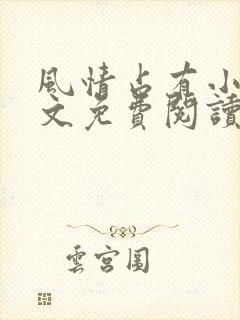 風情占有小
文免費閱讀
雲宮圖